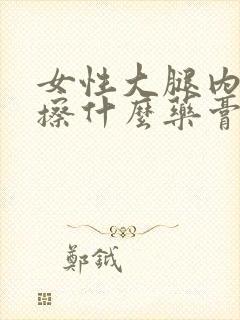 女性大腿內
擦什麼藥膏
鄭鉞